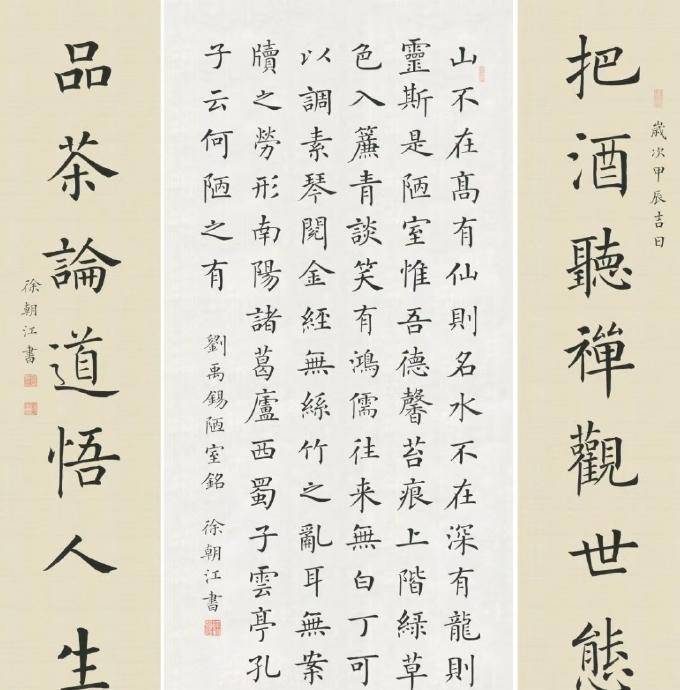 歲次甲辰吉日
把酒聽禪觀世態
山不在髙有仙則名水不在深有龍則
靈斯是陋室惟吾德馨苔痕上階緑草
色入簾青談笑有鴻儒往来無白丁可
以調素琴閱金經無絲竹之亂耳無案
牘之勞形南陽諸葛廬西蜀子雲亭孔
子云何陋之有
劉禹錫陋室銘 徐朝江書
品茶論道悟人生
徐朝江書